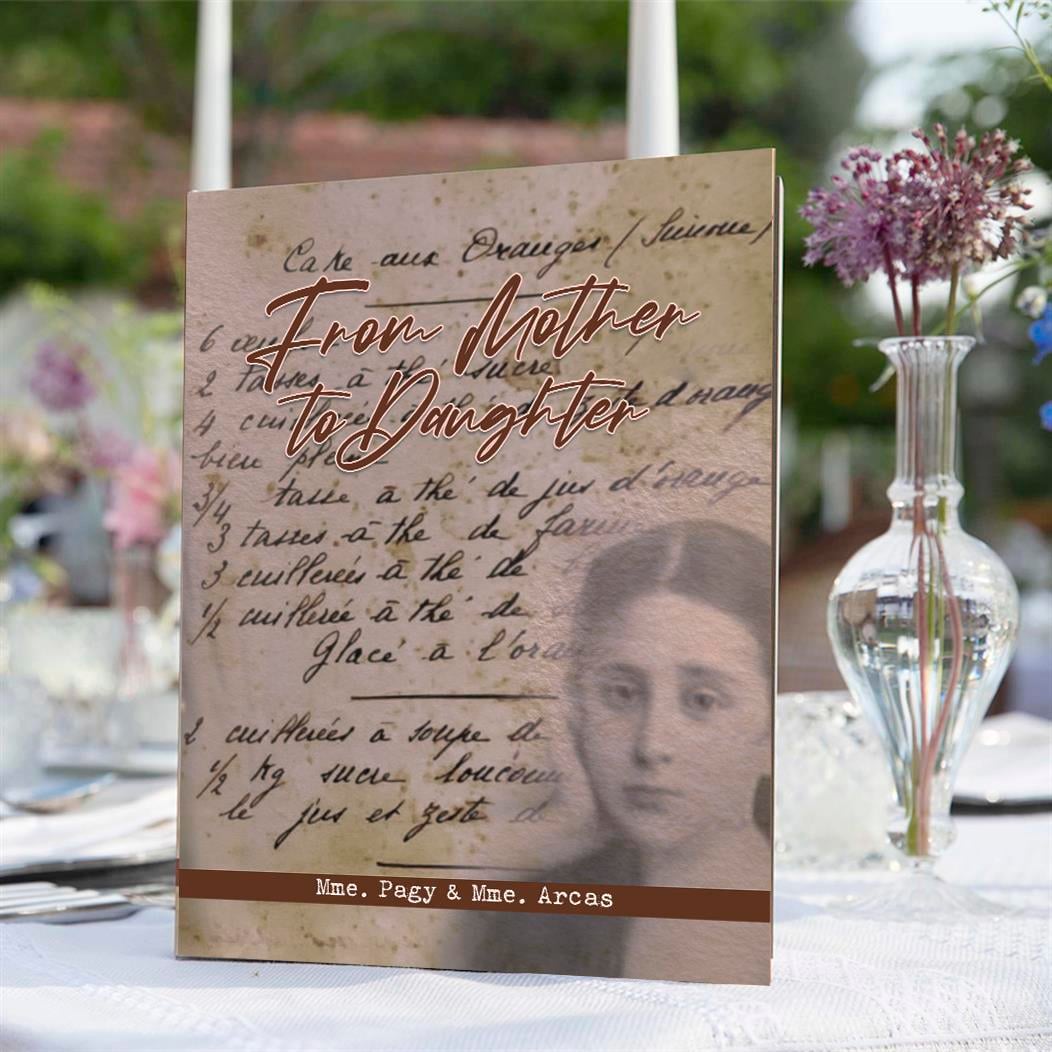 Cake aux Oranges (Simone)
From Mother
to Daughter
6 œufs
2 tasses à thé sucre
4 d'orange
bien
3/4 tasse à thé de jus d'orange
3 tasses à thé de farine
3 cuillerées à thé de
1/2 cuillerée à thé de
Glacé à l'orange
2 cuillerées à soupe de
1/2 kg sucre
le jus et zeste de
Mme. Pagy & Mme. Arcas